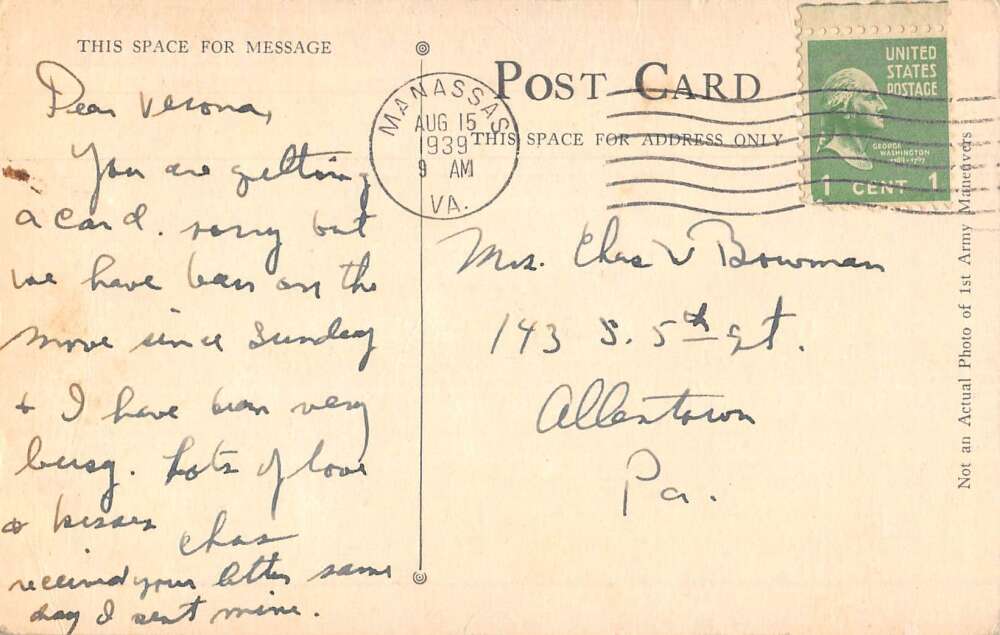 THIS SPACE FOR MESSAGE
Dear Verona,
You are getting
a card. sorry but
we have been on the
move since Sunday
& I have been very
busy. Lots of love
& kisses
Chas
received your letter same
day I sent mine.
MANASSAS
AUG 15
1939
9 AM
VA.
POST CARD
THIS SPACE FOR ADDRESS ONLY
UNITED
STATES
POSTAGE
GEORGE
WASHINGTON
1 CENT 1
Mrs. Chas V Bowman
143 S. 5th St.
Allentown
Pa.
Not an Actual Photo of 1st Army Maneuvers